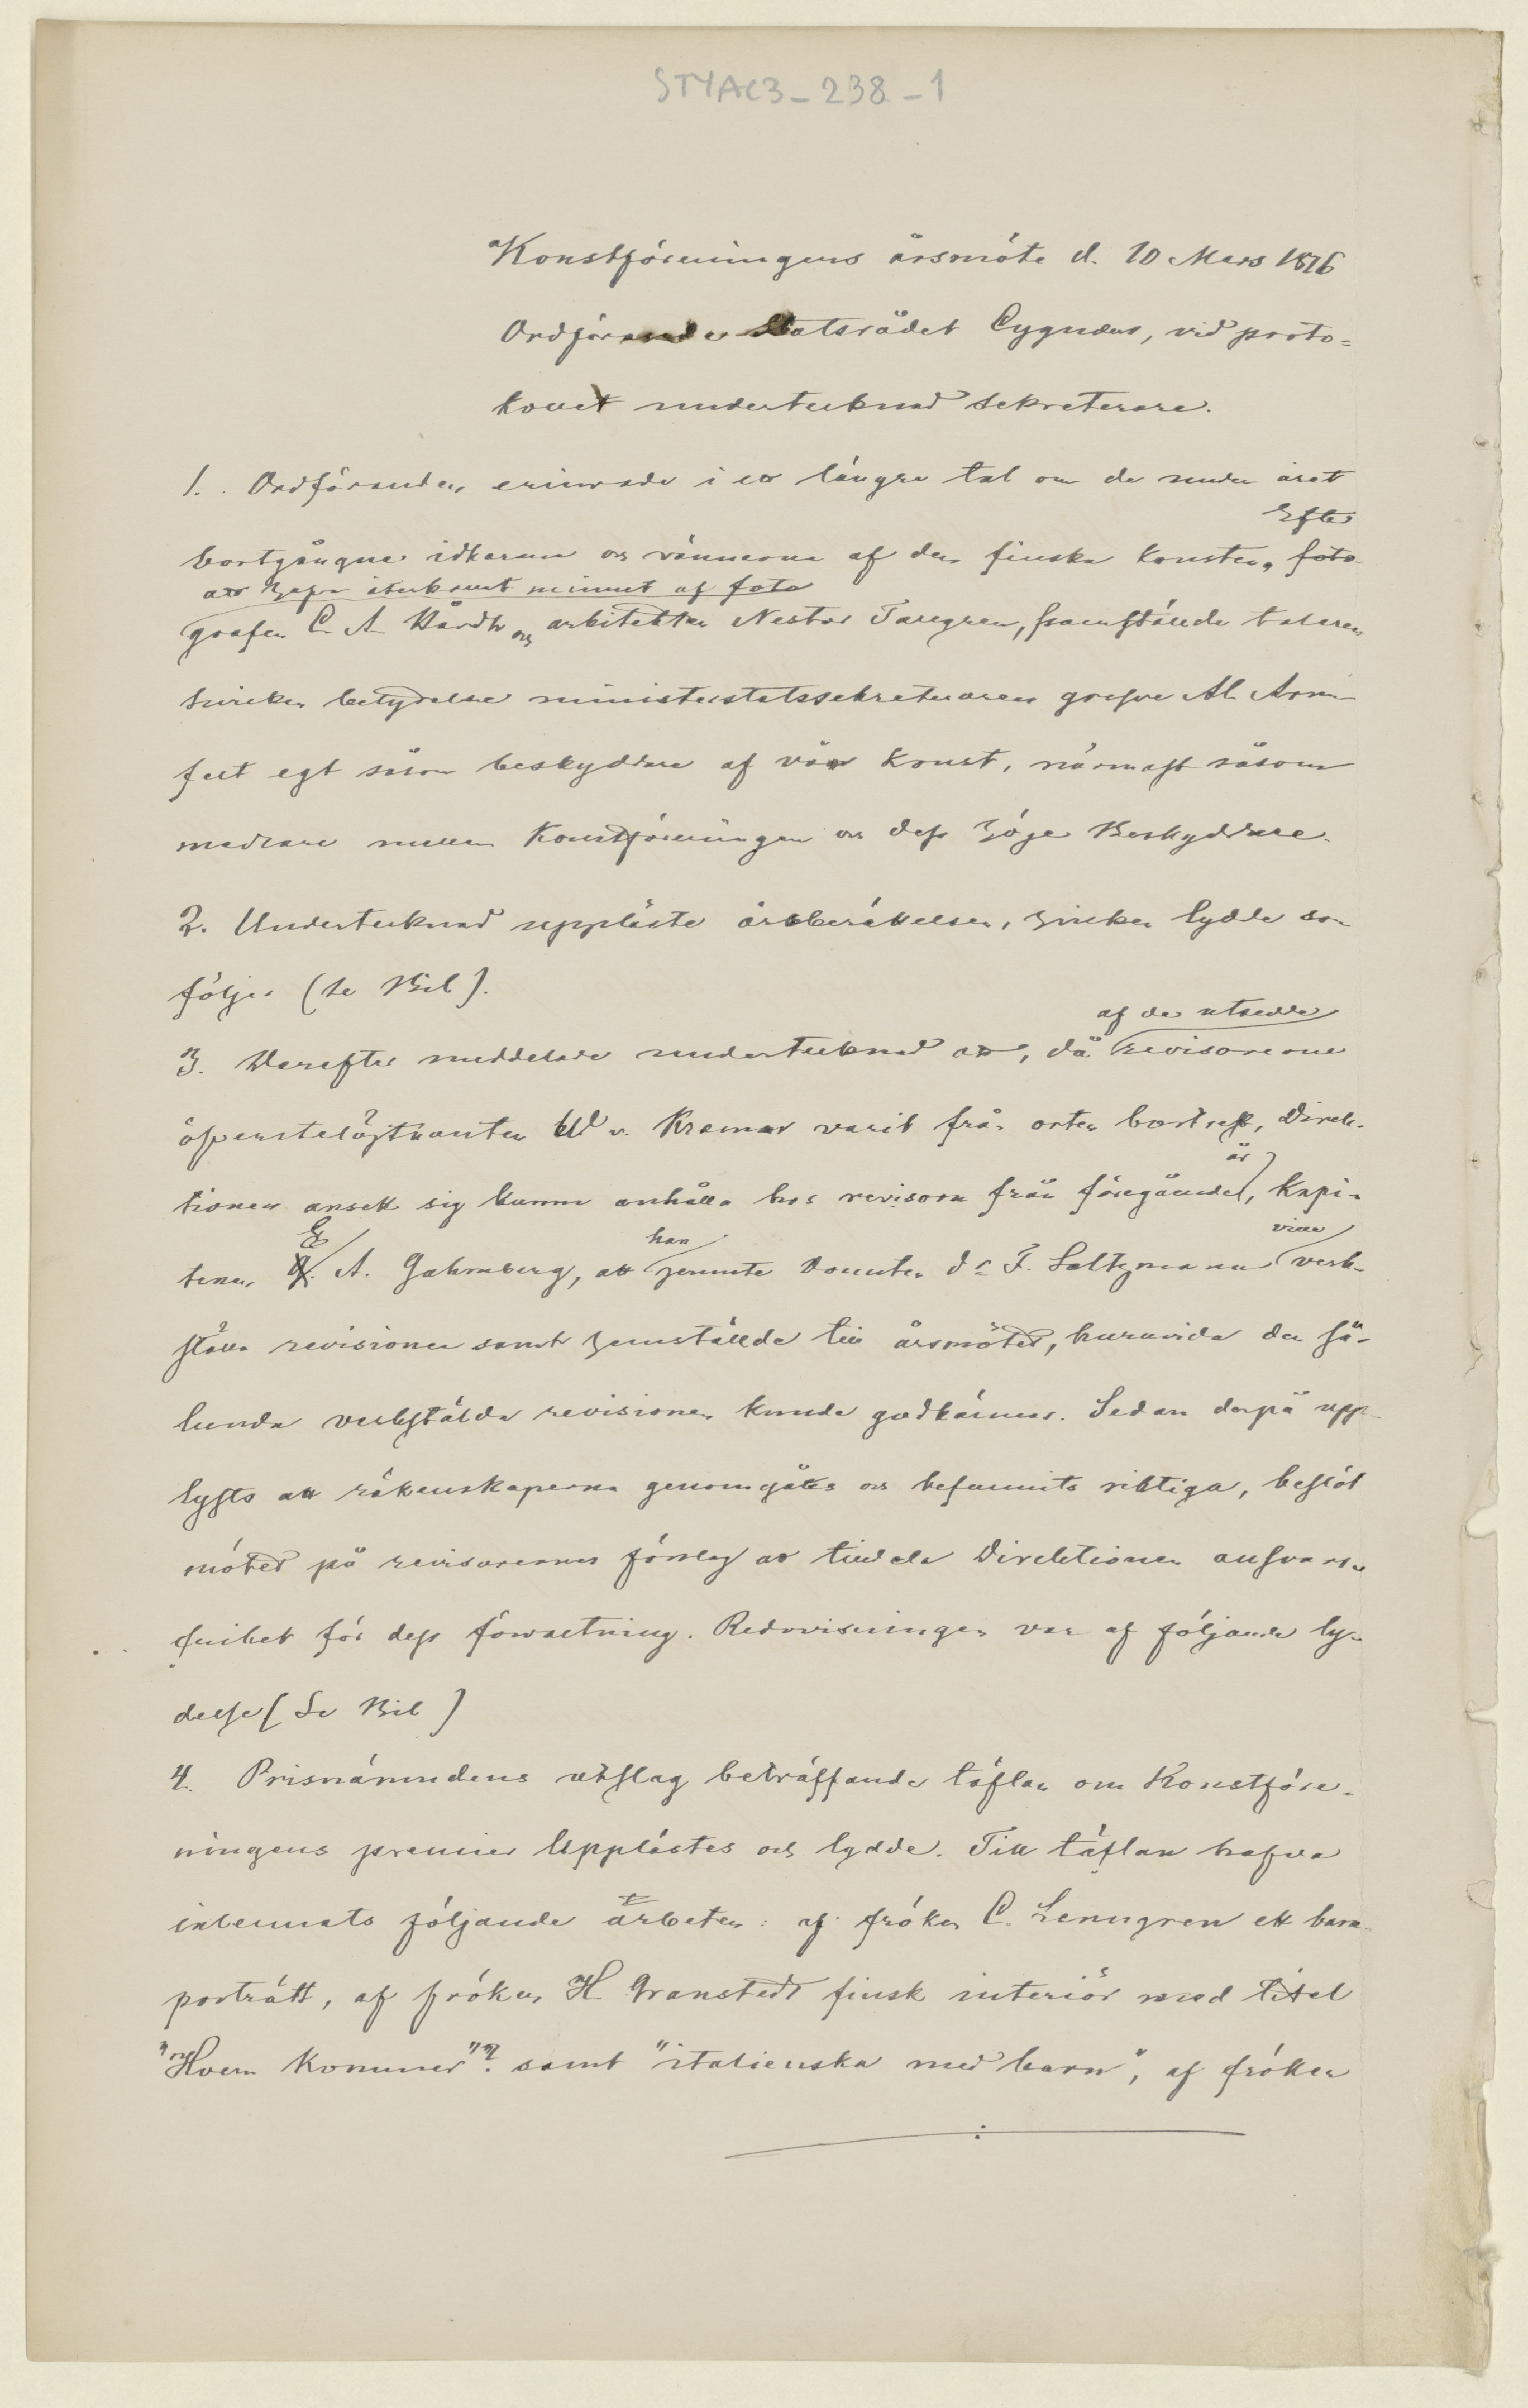 STYAC3-238-1
Konstföreningens årsmöte d. 10 Mars 1876
Ordförande Statsrådet Cygnæus, vid proto-
kollet undertecknad sekreterare.
1. Ordföranden erinrade i ett längre tal om de under året
Efter
bortgångne idkarene och vännerna af den finska konsten, foto-
att hafva återkallat minnet af foto
grafen C. A. Hårdh och arkitekten Nestor Tavegren, framställde talaren
hvilken betydelse ministerstatssekreteraren grefve Al. Arm-
felt egt såsom beskyddare af vår konst, närmast såsom
medlare mellan Konstföreningen och dess Höge Beskyddare.
2. Undertecknad uppläste årsberättelsen, hvilken lydde som
följer (se Bil).
af de utsedde
3. Derefter meddelade undertecknad att, då revisorerne
öfverstelöjtnanten v. Kræmer varit från orten bortrest, Direk-
år
tionen ansett sig kunna anhålla hos revisorn från föregående, Kapi-
han ville
tenen A. Gahmberg, att jemnte Docenten dr F. Saltzmann verk-
ställa revisionen samt hemställde till årsmötet, huruvida den så-
lunda verkställda revisionen kunde godkännas. Sedan derpå upp-
lysts att räkenskaperna genomgåtts och befunnits riktiga, beslöt
mötet på revisorernas förslag att tilldela Direktionen ansvars-
frihet för dess förvaltning. Redovisningen var af följande ly-
delse (Se Bil)
4. Prisnämndens utslag beträffande täflan om Konstföre-
ningens premier upplästes och lydde. Till täflan hafva
inlemnats följande arbeten: af fröken C. Lenngren ett barn-
porträtt, af fröken H. Granstedt finsk interiör med titel
"Hvem kommer"? samt "italienska med barn", af fröken